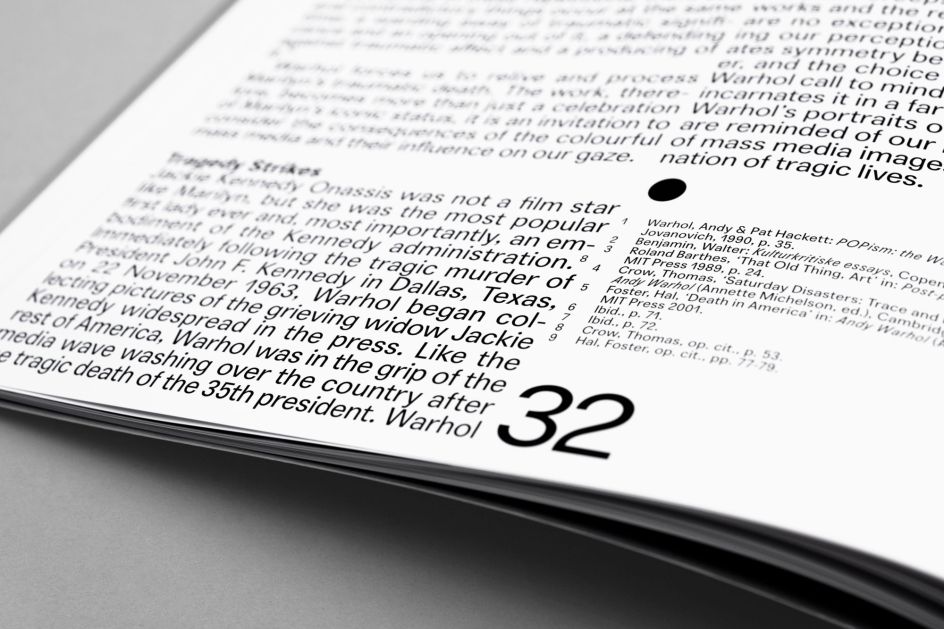 of traumatic signifi-
and an opening out of it, a defending
against traumatic affect and a producing of
Warhol forces us to relive and process
Marilyn's traumatic death. The work, there-
fore, becomes more than just a celebration
of Marilyn's iconic status, it is an invitation to
consider the consequences of the colourful
mass media and their influence on our gaze.
Tragedy Strikes
Jackie Kennedy Onassis was not a film star
like Marilyn, but she was the most popular
first lady ever and, most importantly, an em-
bodiment of the Kennedy administration.
Immediately following the tragic murder of
President John F. Kennedy in Dallas, Texas,
on 22 November 1963, Warhol began col-
lecting pictures of the grieving widow Jackie
Kennedy widespread in the press. Like the
rest of America, Warhol was in the grip of the
media wave washing over the country after
tragic death of the 35th president. Warhol
same works and the
are no exception
ing our perceptio
ates symmetry be
er, and the choice
Warhol call to mind
incarnates it in a far
Warhol's portraits o
are reminded of our
of mass media image
nation of tragic lives.
1 Warhol, Andy & Pat Hackett: POPism: the Wa
Jovanovich, 1990, p. 35.
2 Benjamin, Walter: Kulturkritiske essays, Copen
8 Roland Barthes, 'That Old Thing, Art' in: Post-
MIT Press 1989, p. 24.
4 Crow, Thomas, 'Saturday Disasters: Trace and
Andy Warhol (Annette Michelson, ed.), Cambridg
5 Foster, Hal, 'Death in America' in: Andy Warhol (
MIT Press 2001.
6 Ibid., p. 71.
7 Ibid., p. 72.
8 Crow, Thomas, op. cit., p. 53.
9 Hal, Foster, op. cit., pp. 77-79.
32